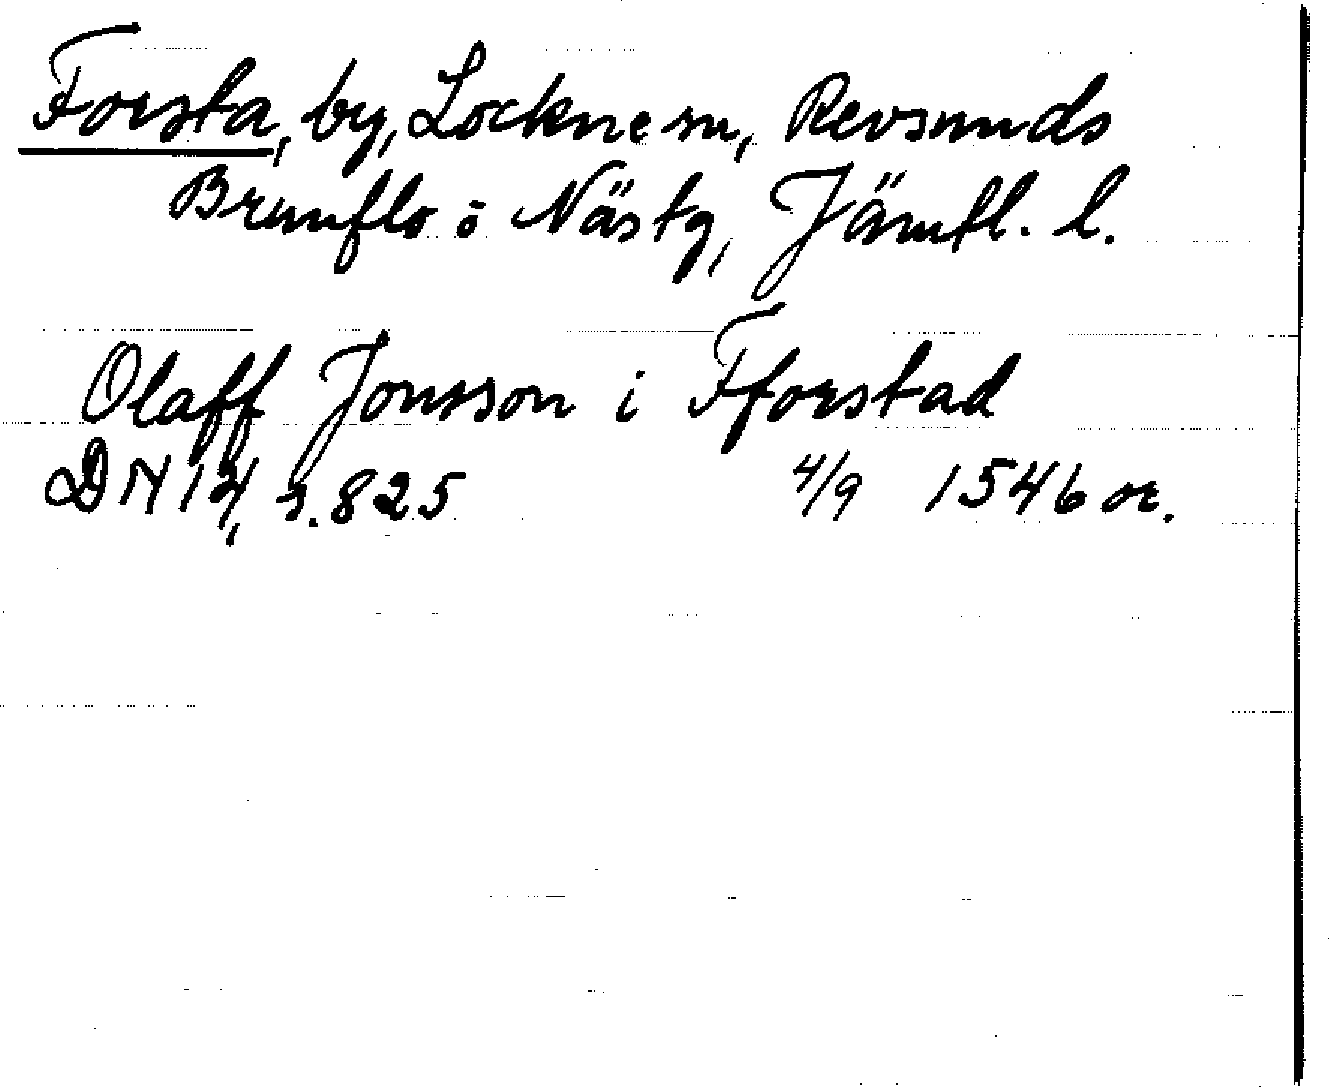 Forsta, by, Lockne sn, Revsunds
Brunflo o Näs tg, Jämtl. l.
Olaff Jonsson i Fforstad
DN 14, s. 825 4/9 1546 or.